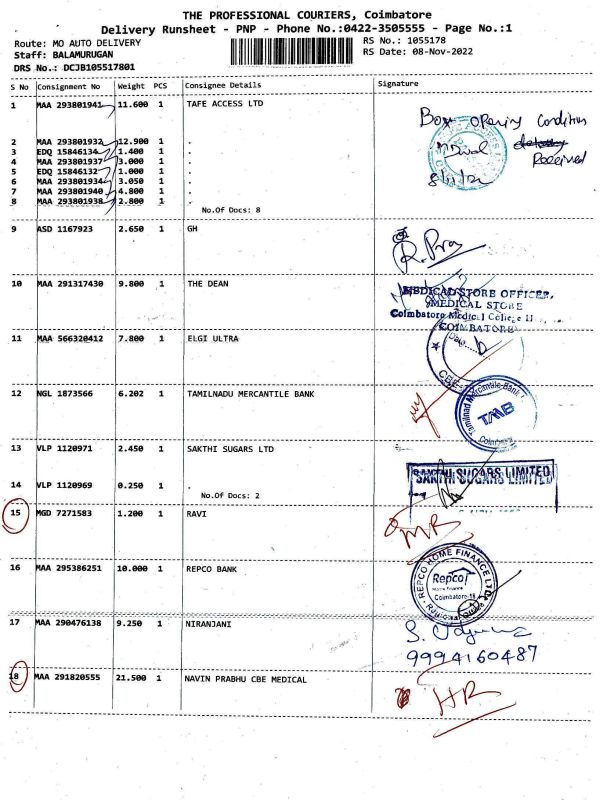 THE PROFESSIONAL COURIERS, Coimbatore
Delivery Runsheet - PNP - Phone No.:0422-3505555 - Page No.:1
Route: MO AUTO DELIVERY
Staff: BALAMURUGAN
DRS No.: DCJB105517801
RS No.: 1055178
RS Date: 08-Nov-2022
S No Consignment No Weight PCS Consignee Details Signature
1 MAA 293801941 11.600 1 TAFE ACCESS LTD
2 MAA 293801932 12.900 1 .
3 EDQ 15846134 1.400 1 .
4 MAA 293801937 3.000 1 .
5 EDQ 15846132 1.000 1 .
6 MAA 293801934 3.050 1 .
7 MAA 293801940 4.800 1 .
8 MAA 293801938 2.800 1 .
No.Of Docs: 8
Box opening Condition
Received
8/11/22
9 ASD 1167923 2.650 1 GH
10 MAA 291317430 9.800 1 THE DEAN
MEDICAL STORE OFFICER,
MEDICAL STORE
Coimbatore Medical College
COIMBATORE
11 MAA 566320412 7.800 1 ELGI ULTRA
Date
12 NGL 1873566 6.202 1 TAMILNADU MERCANTILE BANK
Tamilnad Mercantile Bank
TMB
Coimbatore
13 VLP 1120971 2.450 1 SAKTHI SUGARS LTD
14 VLP 1120969 0.250 1 .
No.Of Docs: 2
SAKTHI SUGARS LIMITED
15 MGD 7271583 1.200 1 RAVI
MR
16 MAA 295386251 10.000 1 REPCO BANK
REPCO HOME FINANCE LTD
Repco
Home Finance
Coimbatore-18
17 MAA 290476138 9.250 1 NIRANJANI
9994160487
18 MAA 291820555 21.500 1 NAVIN PRABHU CBE MEDICAL
HR